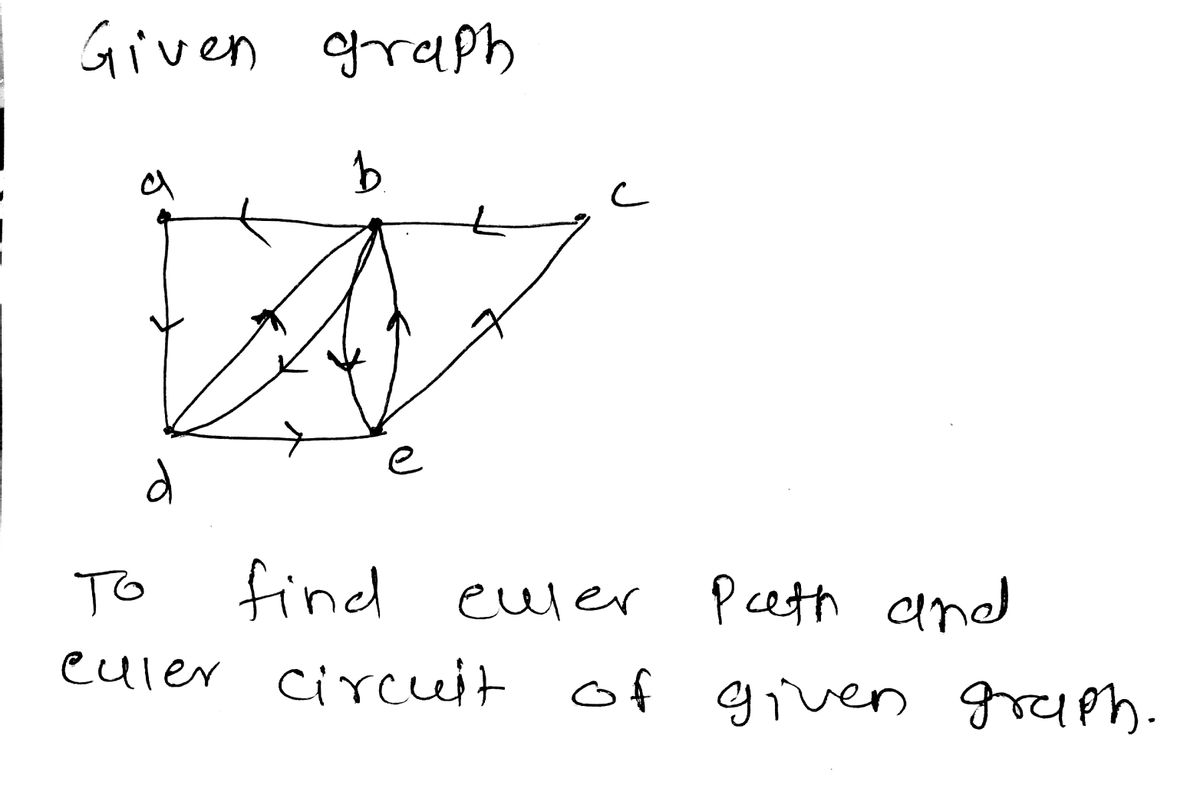 Given graph
a b c
d e
To find euler Path and
euler circuit of given graph.